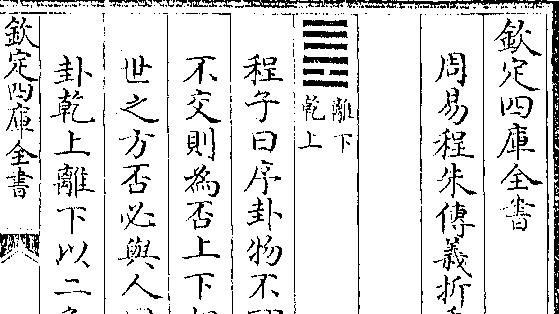 欽定四庫全書
周易程朱傳義折
離下
乾上
程子曰序卦物不
不交則為否上下
世之方否必與人
卦乾上離下以二
欽定四庫全書